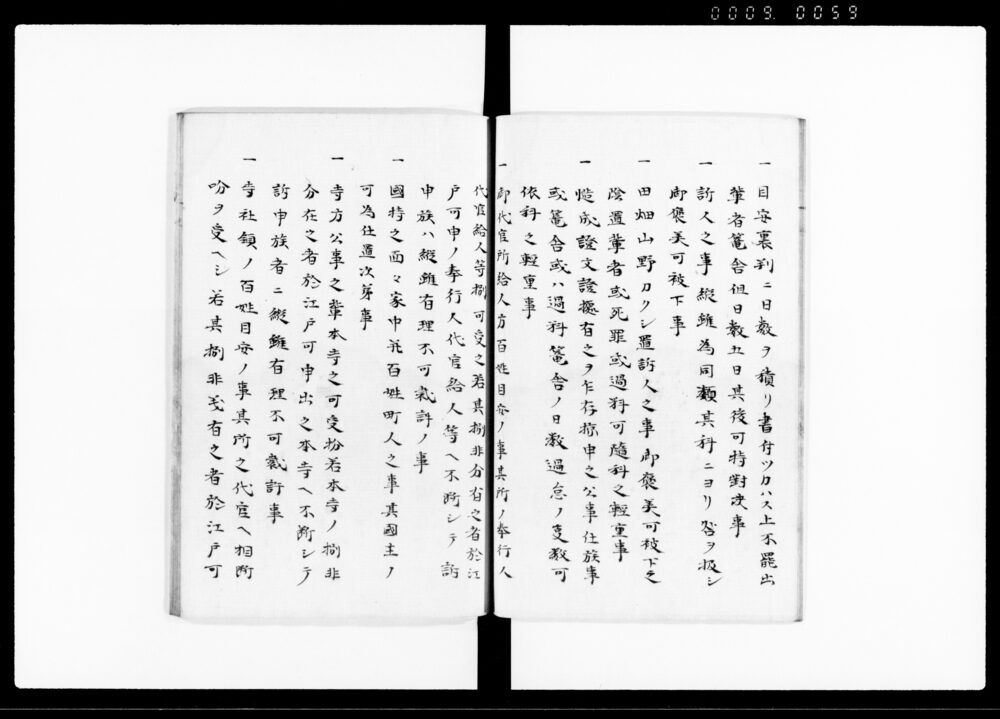 0009. 0059
一 目安裏判ニ日数ヲ積リ書付ツカハス上不罷出
輩者篭舎但日数五日其後可待對决事
一 訴人之事縦雖為同類其科ニヨリ咎ヲ扱シ
御褒美可被下事
一 田畑山野カクシ置訴人之事御褒美可被下之
隂置輩者或死罪或過料可随科之輕重事
一 慥成證文證據有之ヲ乍存掠申之公事仕族事
或篭舎或ハ過料篭舎ノ日数過怠ノ員数可
依科之輕重事
一 御代官所給人方百姓目安ノ事其所ノ奉行人
代官給人等捌可受之若其捌非分有之者於江
戸可申ノ奉行人代官給人等ヘ不断シテ訴
申族ハ縦雖有理不可裁許ノ事
一 國持之面々家中并百姓町人之事其國主ノ
可為仕置次第事
一 寺方公事之輩本寺之可受扮若本寺ノ捌非
分在之者於江戸可申出之本寺ヘ不断シテ
訴申族者ニ縦雖有理不可裁許事
一 寺社領ノ百姓目安ノ事其所之代官ヘ相断
吩ヲ受ヘシ若其捌非義有之者於江戸可